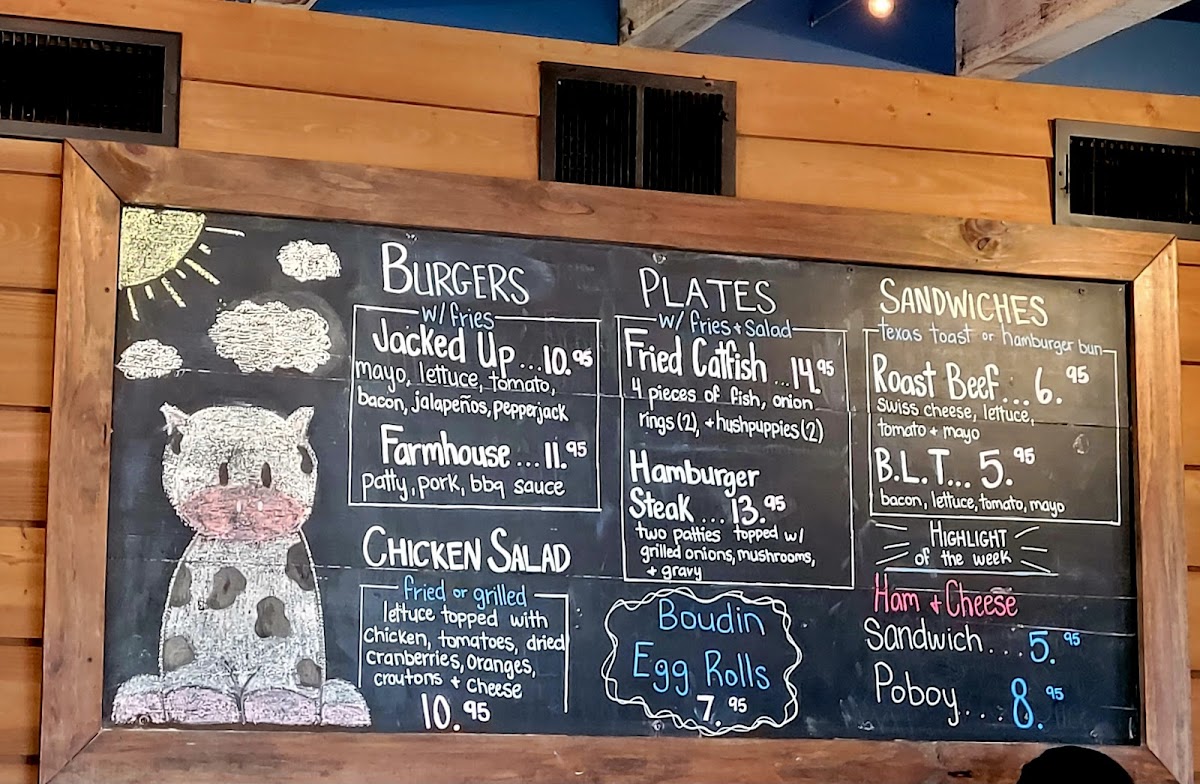 BURGERS
w/ fries
Jacked Up...10.95
mayo, lettuce, tomato,
bacon, jalapeños, pepperjack
Farmhouse...11.95
patty, pork, bbq sauce
CHICKEN SALAD
fried or grilled
lettuce topped with
chicken, tomatoes, dried
cranberries, oranges,
croutons + cheese
10.95
PLATES
w/ fries + salad
Fried Catfish...14.95
4 pieces of fish, onion
rings (2), + hushpuppies (2)
Hamburger
Steak...13.95
two patties topped w/
grilled onions, mushrooms,
+ gravy
Boudin
Egg Rolls
7.95
SANDWICHES
texas toast or hamburger bun
Roast Beef...6.95
swiss cheese, lettuce,
tomato + mayo
B.L.T...5.95
bacon, lettuce, tomato, mayo
HIGHLIGHT
of the week
Ham + Cheese
Sandwich...5.95
Poboy...8.95